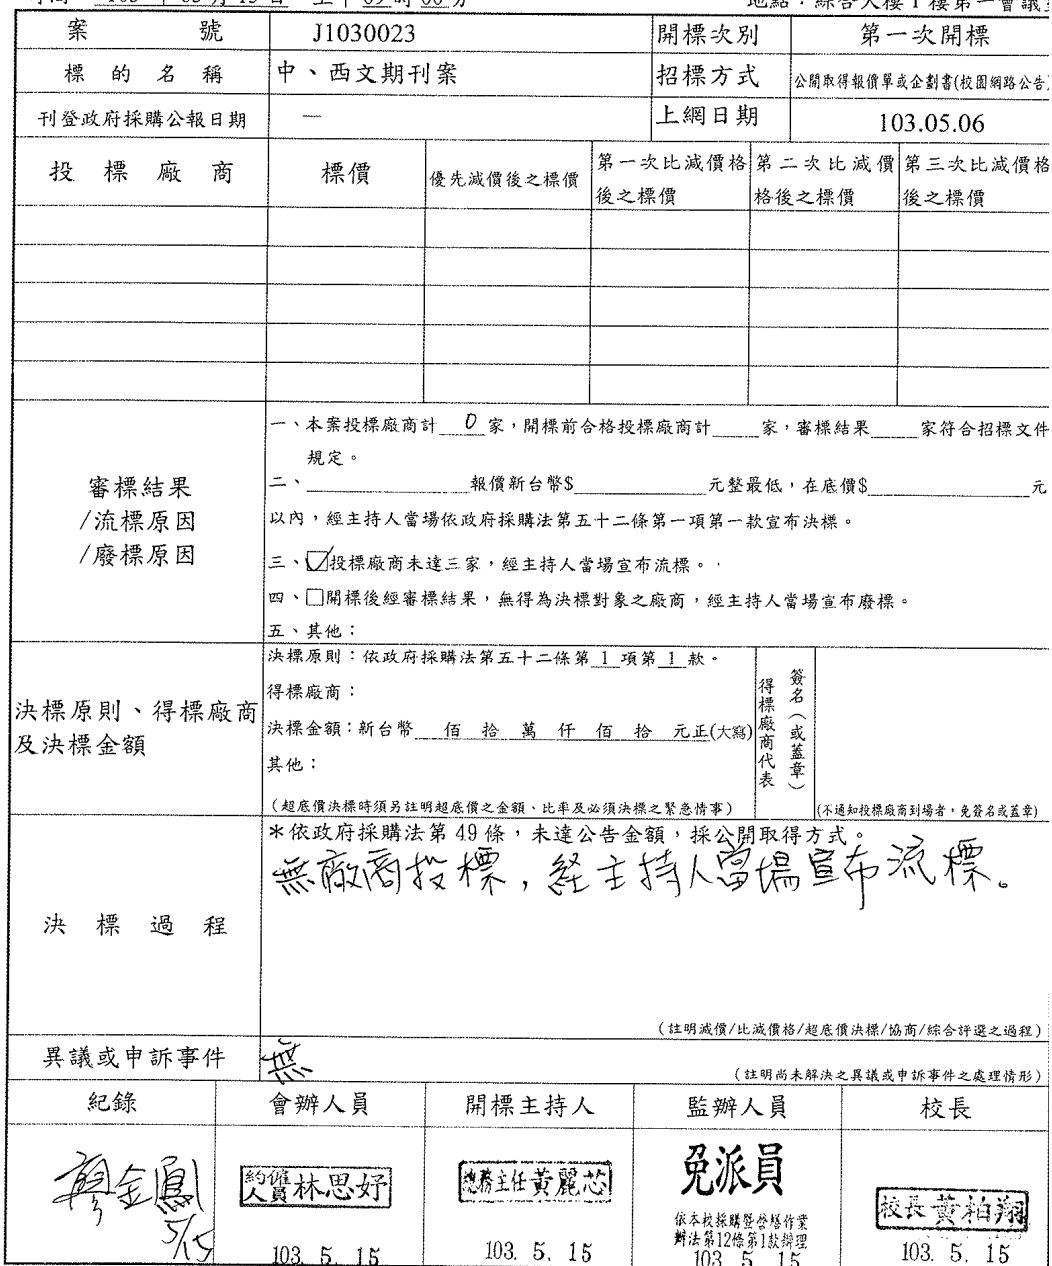 案 號 J1030023 開標次別 第一次開標
標 的 名 稱 中、西文期刊案 招標方式 公開取得報價單或企劃書(校園網路公告)
刊登政府採購公報日期 — 上網日期 103.05.06
投 標 廠 商 標價 優先減價後之標價 第一次比減價格後之標價 第二次比減價格後之標價 第三次比減價格後之標價
審標結果
/流標原因
/廢標原因
一、本案投標廠商計 0 家，開標前合格投標廠商計____家，審標結果____家符合招標文件
規定。
二、________報價新台幣$________元整最低，在底價$________元
以內，經主持人當場依政府採購法第五十二條第一項第一款宣布決標。
三、☑投標廠商未達三家，經主持人當場宣布流標。
四、□開標後經審標結果，無得為決標對象之廠商，經主持人當場宣布廢標。
五、其他：
決標原則、得標廠商
及決標金額
決標原則：依政府採購法第五十二條第 1 項第 1 款。
得標廠商：
決標金額：新台幣 佰 拾 萬 仟 佰 拾 元正(大寫)
其他：
(超底價決標時須另註明超底價之金額、比率及必須決標之緊急情事)
得標廠商代表
簽名(或蓋章)
(不通知投標廠商到場者，免簽名或蓋章)
決 標 過 程
*依政府採購法第 49 條，未達公告金額，採公開取得方式。
無廠商投標，經主持人當場宣布流標。
(註明減價/比減價格/超底價決標/協商/綜合評選之過程)
異議或申訴事件 無
(註明尚未解決之異議或申訴事件之處理情形)
紀錄 會辦人員 開標主持人 監辦人員 校長
廖金鳳 5/15
約僱人員 林思妤
103. 5. 15
總務主任 黃麗芯
103. 5. 15
免派員
依本校採購暨營繕作業
辦法第12條第1款辦理
103 5 15
校長 黃柏翔
103. 5. 15